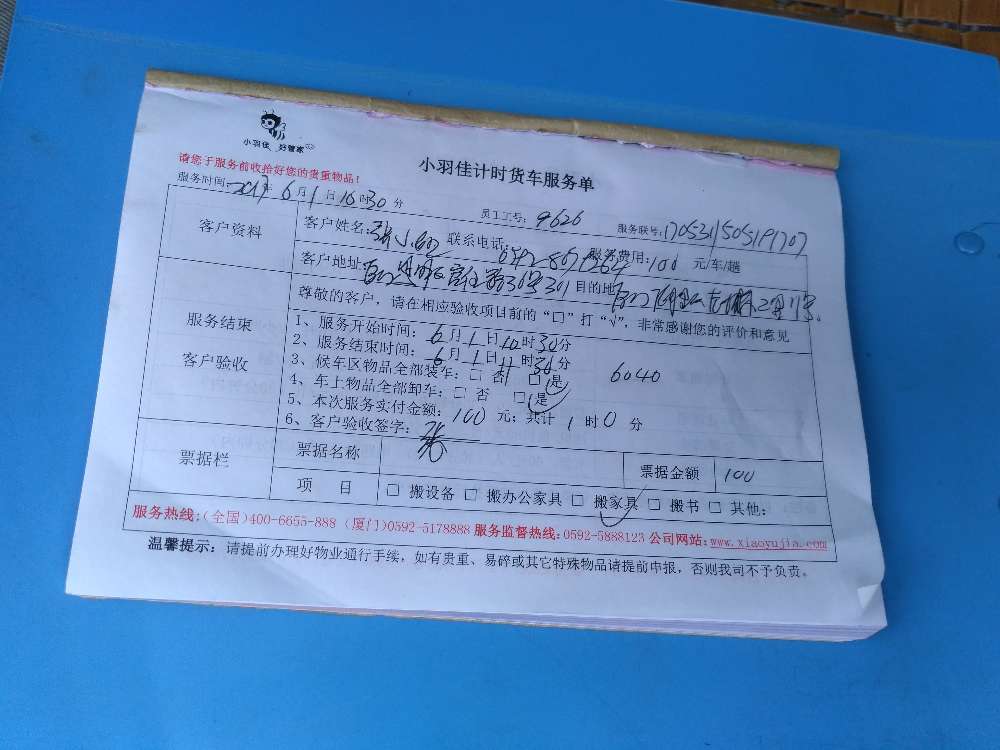 小羽佳 好管家
小羽佳计时货车服务单
请您于服务前收拾好您的贵重物品！
服务时间：2017年6月1日10时30分 员工工号：9626 服务联号：1705311505191707
客户资料
客户姓名：张小 联系电话： 服务费用：100 元/车/趟
客户地址： 目的地：
服务结束
客户验收
尊敬的客户，请在相应验收项目前的“口”打“√”，非常感谢您的评价和意见
1、服务开始时间：6月1日10时30分
2、服务结束时间：6月1日11时30分
3、候车区物品全部装车：□ 否 □ 是 6040
4、车上物品全部卸车：□ 否 □ 是
5、本次服务实付金额：100元；共计1时0分
6、客户验收签字：张
票据栏
票据名称 票据金额 100
项 目 □ 搬设备 □ 搬办公家具 □ 搬家具 □ 搬书 □ 其他：
服务热线：(全国)400-6655-888 (厦门)0592-5178888 服务监督热线：0592-5888123 公司网站：www.xiaoyujia.com
温馨提示：请提前办理好物业通行手续，如有贵重、易碎或其它特殊物品请提前申报，否则我司不予负责。